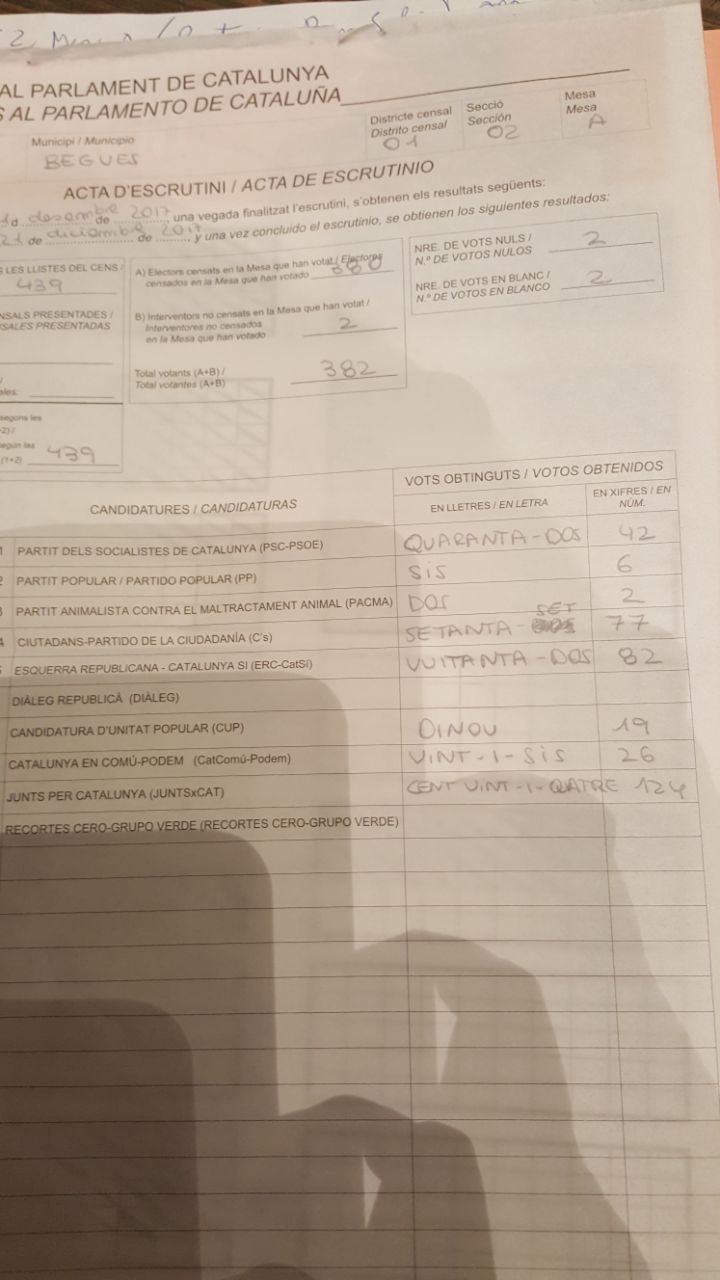 AL PARLAMENT DE CATALUNYA
S AL PARLAMENTO DE CATALUÑA
Municipi / Municipio
BEGUES
Districte censal
Distrito censal
01
Secció
Sección
02
Mesa
Mesa
A
ACTA D'ESCRUTINI / ACTA DE ESCRUTINIO
desembre de 2017, una vegada finalitzat l'escrutini, s'obtenen els resultats següents:
21 de diciembre de 2017, y una vez concluido el escrutinio, se obtienen los siguientes resultados:
S LES LLISTES DEL CENS /
439
NSALS PRESENTADES /
SALES PRESENTADAS
ales:
segons les
-2) /
egún las
(1+2) 439
A) Electors censats en la Mesa que han votat / Electores
censados en la Mesa que han votado 380
B) Interventors no censats en la Mesa que han votat /
Interventores no censados
en la Mesa que han votado 2
Total votants (A+B) /
Total votantes (A+B) 382
NRE. DE VOTS NULS /
N.º DE VOTOS NULOS 2
NRE. DE VOTS EN BLANC /
N.º DE VOTOS EN BLANCO 2
CANDIDATURES / CANDIDATURAS
VOTS OBTINGUTS / VOTOS OBTENIDOS
EN LLETRES / EN LETRA
EN XIFRES / EN
NÚM.
1 PARTIT DELS SOCIALISTES DE CATALUNYA (PSC-PSOE) QUARANTA-DOS 42
2 PARTIT POPULAR / PARTIDO POPULAR (PP) SIS 6
3 PARTIT ANIMALISTA CONTRA EL MALTRACTAMENT ANIMAL (PACMA) DOS 2
4 CIUTADANS-PARTIDO DE LA CIUDADANÍA (C's) SETANTA-SET 77
5 ESQUERRA REPUBLICANA - CATALUNYA SI (ERC-CatSí) VUITANTA-DOS 82
DIÀLEG REPUBLICÀ (DIÀLEG)
CANDIDATURA D'UNITAT POPULAR (CUP) DINOU 19
CATALUNYA EN COMÚ-PODEM (CatComú-Podem) VINT-I-SIS 26
JUNTS PER CATALUNYA (JUNTSxCAT) CENT VINT-I-QATRE 124
RECORTES CERO-GRUPO VERDE (RECORTES CERO-GRUPO VERDE)